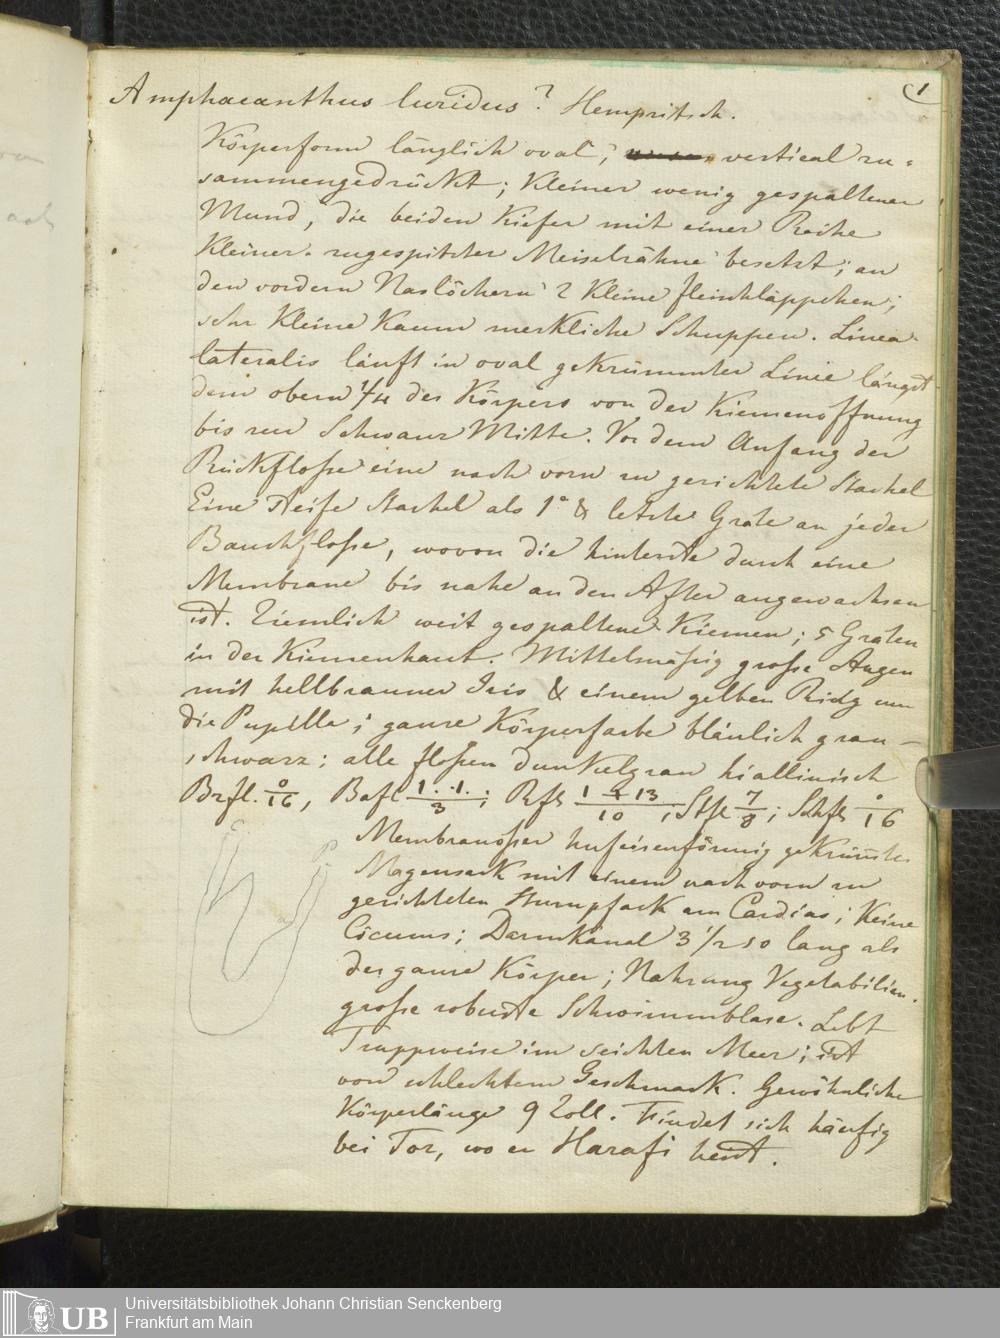 1
Amphacanthus luridus? Hempritsch.
Körperform länglich oval, vertical zu-
sammengedrückt; kleiner wenig gespaltener
Mund, die beiden Kiefer mit einer Reihe
kleiner zugespitzter Meiselzähne besetzt; an
den vordern Naslöchern 2 kleine fleischläppchen;
sehr kleine kaum merkliche Schuppen. Linea
lateralis läuft in oval gekrümmter Linie längst
dem obern 1/4 des Körpers von der Kiemenöffnung
bis zur Schwanz Mitte. Vor dem Anfang der
Rückfloße eine nach vorn zu gerichtete Stachel
Eine steife Stachel als 1° & letzte Grate an jeder
Bauchfloße, wovon die hinterste durch eine
Membrane bis nahe an den After angewachsen
ist. Ziemlich weit gespaltene Kiemen; 5 Graten
in der Kiemenhaut. Mittelmäßig große Augen
mit hellbrauner Iris & einem gelben Ring um
die Pupille; ganze Körperfarbe bläulich grau-
schwarz; alle floßen dunkelgrau hiallinisch
Brfl. 0/16, Bafl 1..1./3; Rfl 1 + 13/10; Stfl 7/8; Schfl 0/16
Membranößer hufeisenförmig gekrümter
Magensack mit einem nach vorn zu
gerichteten Stumpfsack am Cardias; keine
Cöcums; Darmkanal 3 1/2 so lang als
der ganze Körper; Nahrung Vegetabilien.
große robuste Schwimmblase. Lebt
Truppweise im seichten Meer; ist
von schlechtem Geschmack. Gewöhnliche
Körperlänge 9 Zoll. Findet sich häufig
bei Tor, wo er Harafi heist.
UB
Universitätsbibliothek Johann Christian Senckenberg
Frankfurt am Main